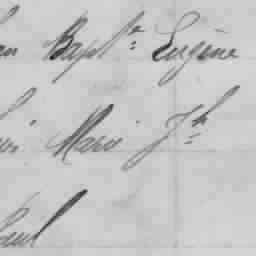 Bapte Eugène
Marie Jh
Paul